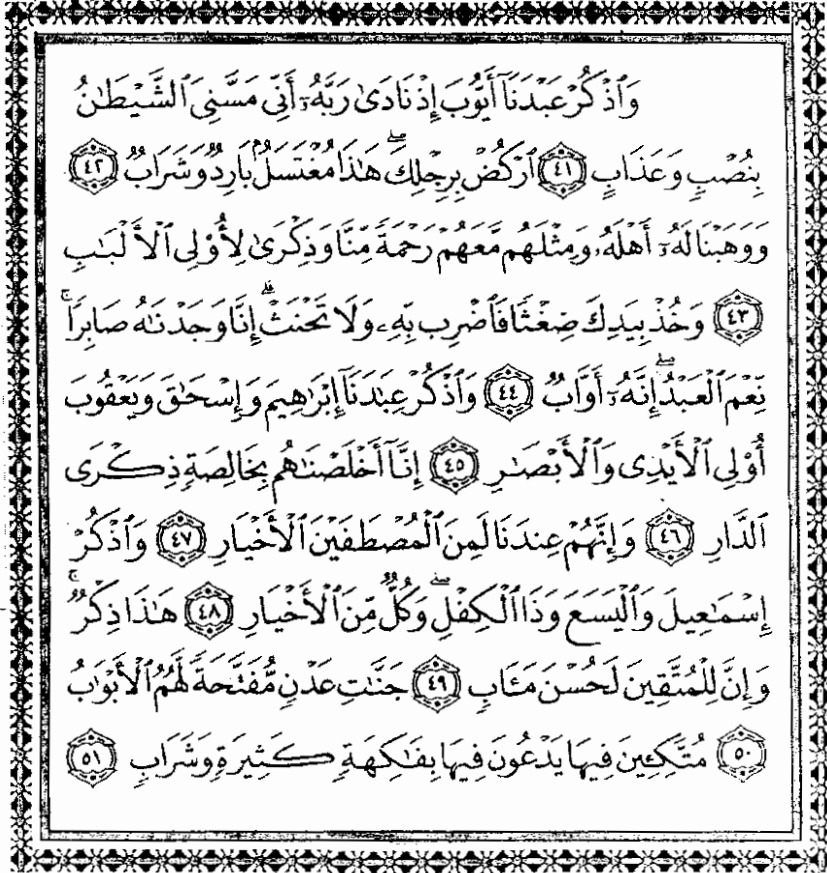 وَٱذْكُرْ عَبْدَنَآ أَيُّوبَ إِذْ نَادَىٰ رَبَّهُۥٓ أَنِّي مَسَّنِيَ ٱلشَّيْطَٰنُ
بِنُصْبٍ وَعَذَابٍ ﴿٤١﴾ ٱرْكُضْ بِرِجْلِكَۖ هَٰذَا مُغْتَسَلٌۢ بَارِدٌ وَشَرَابٌ ﴿٤٢﴾
وَوَهَبْنَا لَهُۥٓ أَهْلَهُۥ وَمِثْلَهُم مَّعَهُمْ رَحْمَةً مِّنَّا وَذِكْرَىٰ لِأُوْلِي ٱلْأَلْبَٰبِ
﴿٤٣﴾ وَخُذْ بِيَدِكَ ضِغْثًا فَٱضْرِب بِّهِۦ وَلَا تَحْنَثْۗ إِنَّا وَجَدْنَٰهُ صَابِرًاۚ
نِّعْمَ ٱلْعَبْدُۖ إِنَّهُۥٓ أَوَّابٌ ﴿٤٤﴾ وَٱذْكُرْ عِبَٰدَنَآ إِبْرَٰهِيمَ وَإِسْحَٰقَ وَيَعْقُوبَ
أُوْلِي ٱلْأَيْدِي وَٱلْأَبْصَٰرِ ﴿٤٥﴾ إِنَّآ أَخْلَصْنَٰهُم بِخَالِصَةٍ ذِكْرَى
ٱلدَّارِ ﴿٤٦﴾ وَإِنَّهُمْ عِندَنَا لَمِنَ ٱلْمُصْطَفَيْنَ ٱلْأَخْيَارِ ﴿٤٧﴾ وَٱذْكُرْ
إِسْمَٰعِيلَ وَٱلْيَسَعَ وَذَا ٱلْكِفْلِۖ وَكُلٌّ مِّنَ ٱلْأَخْيَارِ ﴿٤٨﴾ هَٰذَا ذِكْرٌۚ
وَإِنَّ لِلْمُتَّقِينَ لَحُسْنَ مَـَٔابٍ ﴿٤٩﴾ جَنَّٰتِ عَدْنٍ مُّفَتَّحَةً لَّهُمُ ٱلْأَبْوَٰبُ
﴿٥٠﴾ مُتَّكِـِٔينَ فِيهَا يَدْعُونَ فِيهَا بِفَٰكِهَةٍ كَثِيرَةٍ وَشَرَابٍ ﴿٥١﴾